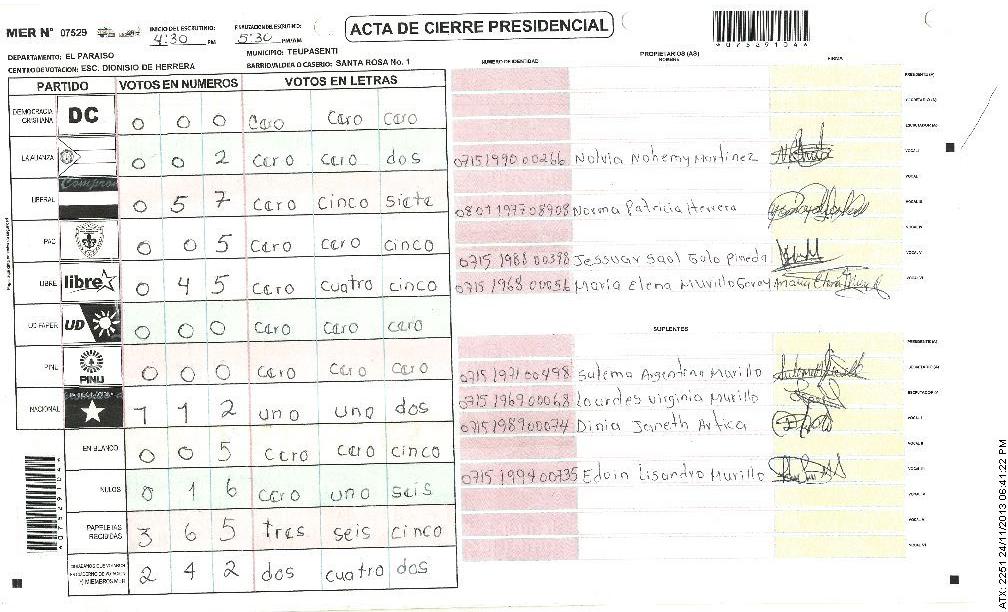 MER N° 07529
INICIO DEL ESCRUTINIO: 4:30 PM
FINALIZACION DEL ESCRUTINIO: 5:30 PM/AM
ACTA DE CIERRE PRESIDENCIAL
DEPARTAMENTO: EL PARAISO
MUNICIPIO: TEUPASENTI
CENTRO DE VOTACION: ESC. DIONISIO DE HERRERA
BARRIO/ALDEA O CASERIO: SANTA ROSA No. 1
PARTIDO VOTOS EN NUMEROS VOTOS EN LETRAS
DEMOCRACIA CRISTIANA DC 0 0 0 cero cero cero
LA ALIANZA 0 0 2 cero cero dos
LIBERAL 0 5 7 cero cinco siete
PAC 0 0 5 cero cero cinco
LIBRE libre 0 4 5 cero cuatro cinco
UD FAPER UD 0 0 0 cero cero cero
PINU PINU 0 0 0 cero cero cero
NACIONAL 1 1 2 uno uno dos
EN BLANCO 0 0 5 cero cero cinco
NULOS 0 1 6 cero uno seis
PAPELETAS RECIBIDAS 3 6 5 tres seis cinco
2 4 2 dos cuatro dos
NUMERO DE IDENTIDAD
PROPIETARIOS (AS)
NOMBRE
FIRMA
PRESIDENTE (A)
SECRETARIO (A)
ESCRUTADOR (A)
0715199000266 Nolvia Nohemy Martinez VOCAL I
VOCAL II
0801197708908 Norma Patricia Herrera VOCAL III
VOCAL IV
0715 1988 00398 Jessuar Saol Golo Pineda VOCAL V
0715 1968 00056 Maria Elena Murillo Godoy VOCAL VI
SUPLENTES
PRESIDENTE (A)
0715 1971 00498 Sulema Argentina Murillo SECRETARIO (A)
0715 1969 00068 Lourdes Virginia Murillo ESCRUTADOR (A)
0715198900074 Dinia Janeth Artica VOCAL I
VOCAL II
0715 1994 00735 Edwin Lisandro Murillo VOCAL III
VOCAL IV
VOCAL V
VOCAL VI
ATX: 2251 24/11/2013 06:41:22 PM